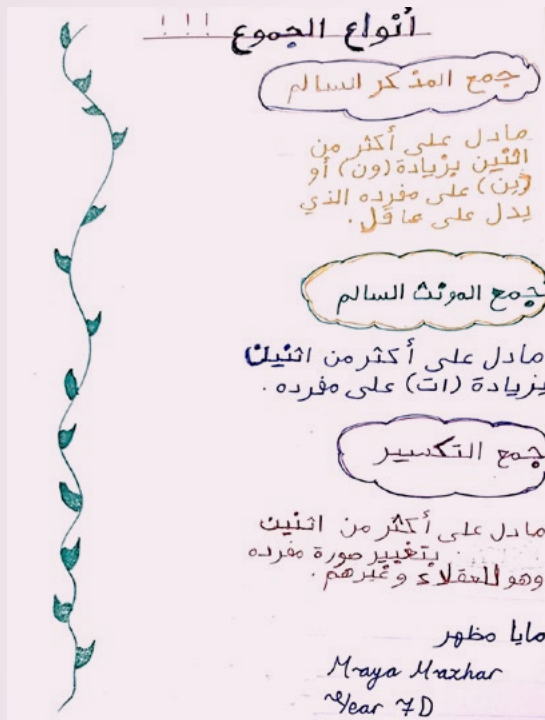 أنواع الجموع !!!
جمع المذكر السالم
مادل على أكثر من
اثنين بزيادة (ون) أو
(ين) على مفرده الذي
يدل على عاقل.
جمع المونث السالم
مادل على أكثر من اثنين
بزيادة (ات) على مفرده.
جمع التكسير
مادل على أكثر من اثنين
بتغيير صورة مفرده
وهو للعقلاء وغيرهم.
مايا مظهر
Maya Mazhar
Year 7D